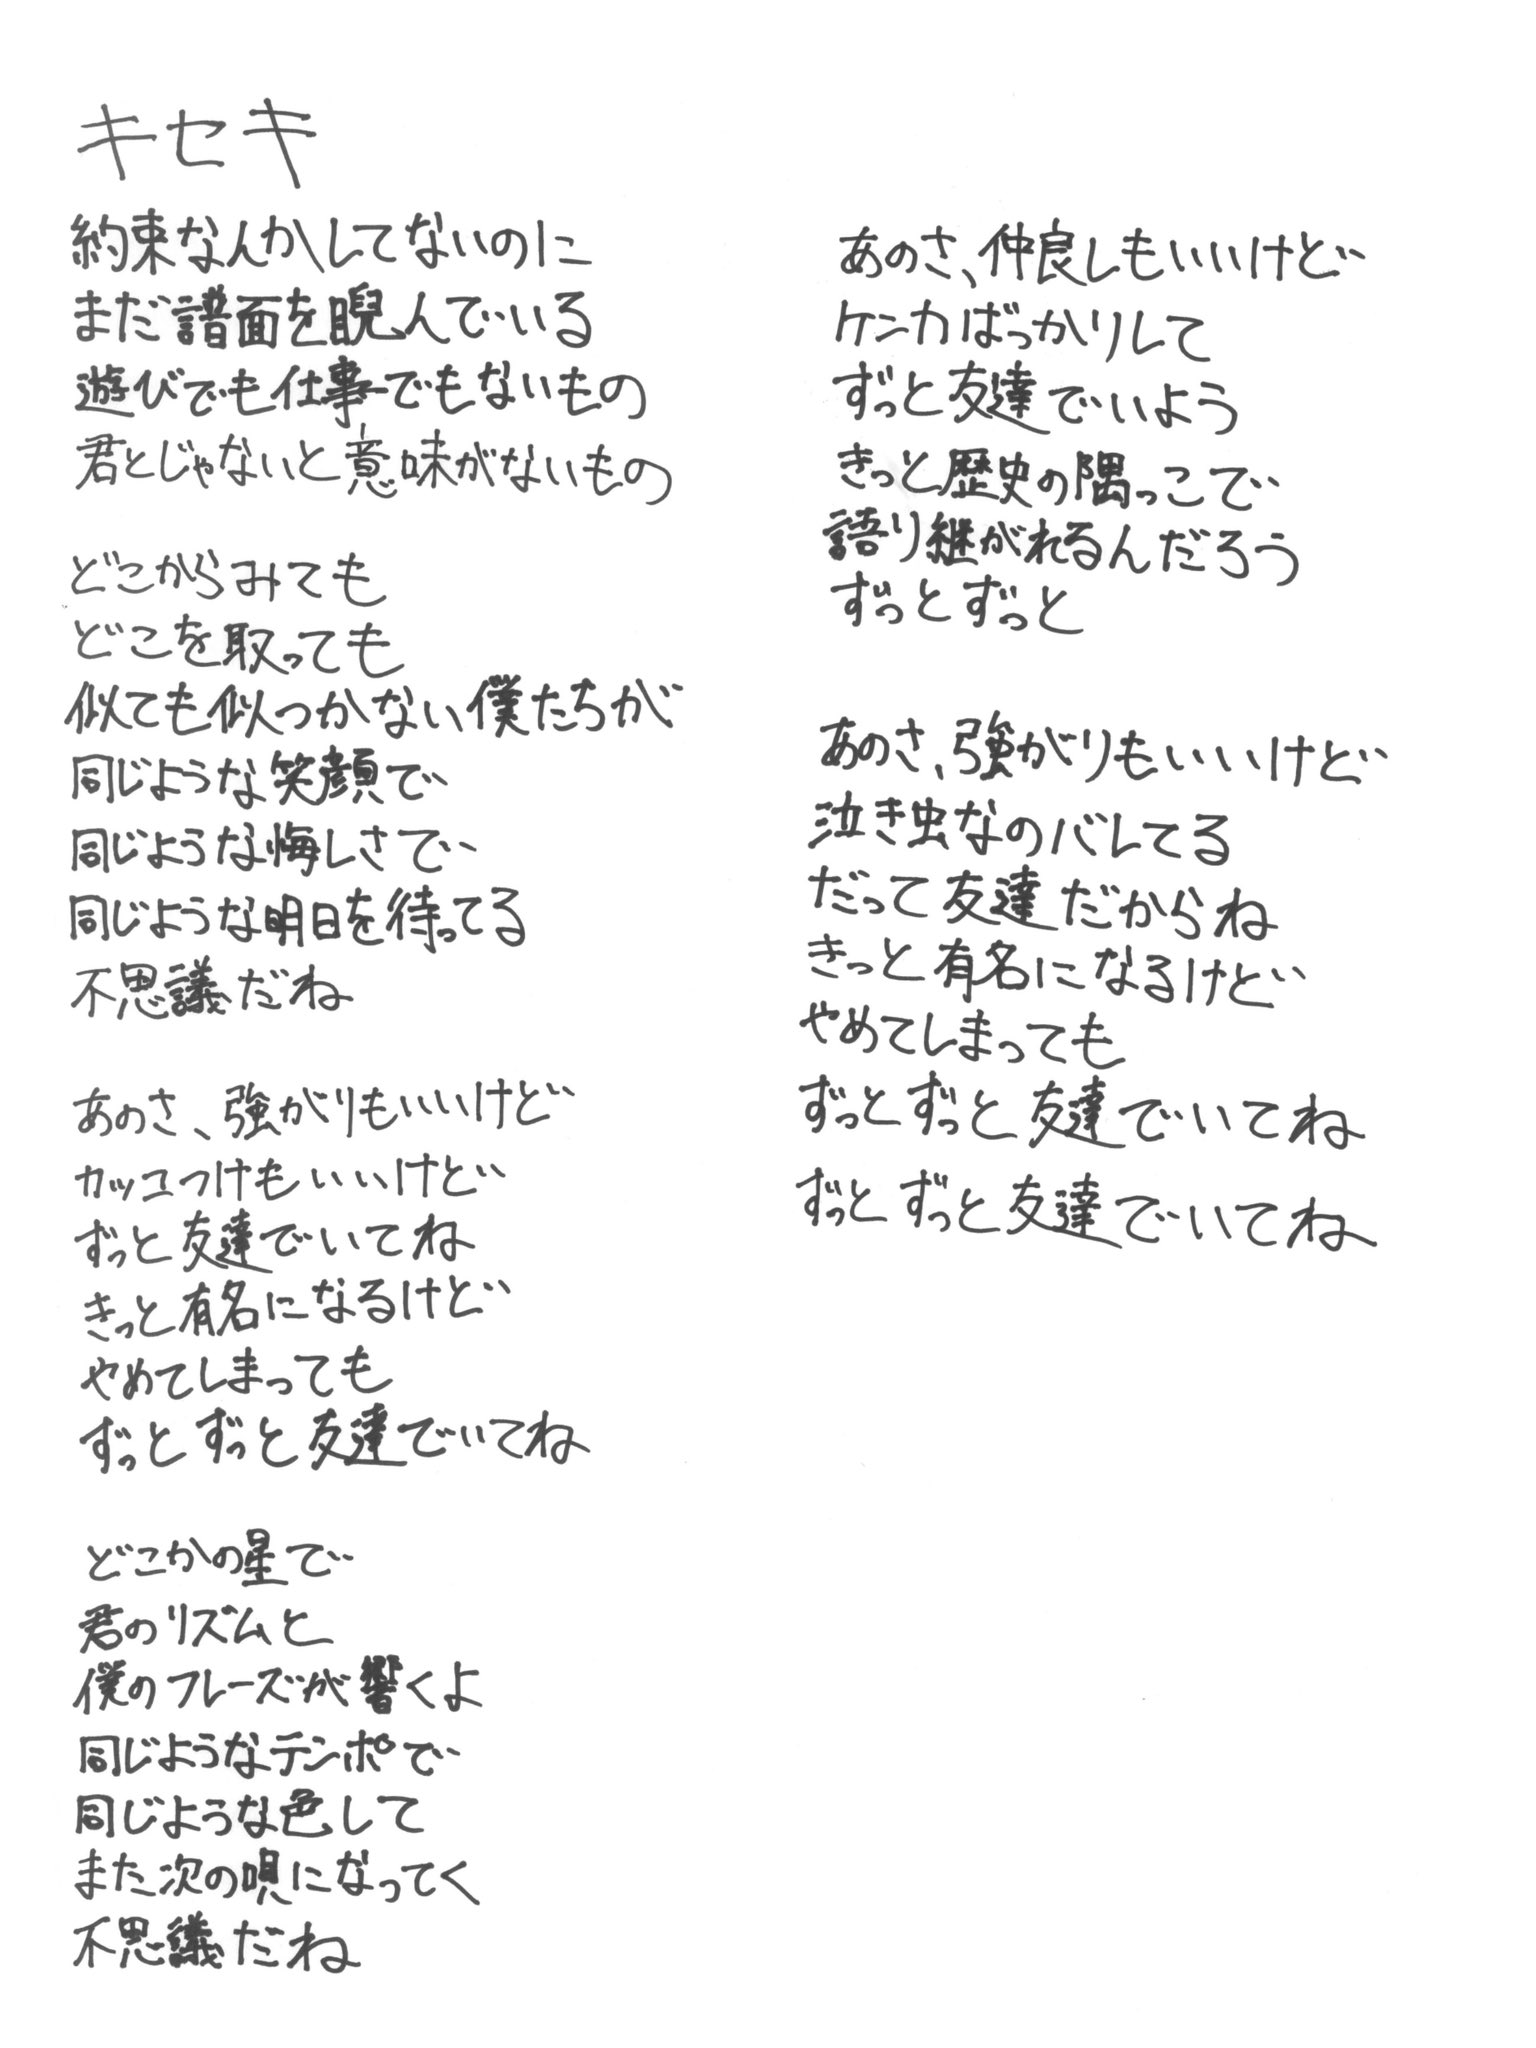 キセキ
約束なんかしてないのに
まだ譜面を睨んでいる
遊びでも仕事でもないもの
君とじゃないと意味がないもの
どこからみても
どこを取っても
似ても似つかない僕たちが
同じような笑顔で
同じような悔しさで
同じような明日を待ってる
不思議だね
あのさ、強がりもいいけど
カッコつけもいいけど
ずっと友達でいてね
きっと有名になるけど
やめてしまっても
ずっとずっと友達でいてね
どこかの星で
君のリズムと
僕のフレーズが響くよ
同じようなテンポで
同じような色して
また次の唄になってく
不思議だね
あのさ、仲良しもいいけど
ケンカばっかりして
ずっと友達でいよう
きっと歴史の隅っこで
語り継がれるんだろう
ずっとずっと
あのさ、強がりもいいけど
泣き虫なのバレてる
だって友達だからね
きっと有名になるけど
やめてしまっても
ずっとずっと友達でいてね
ずっとずっと友達でいてね